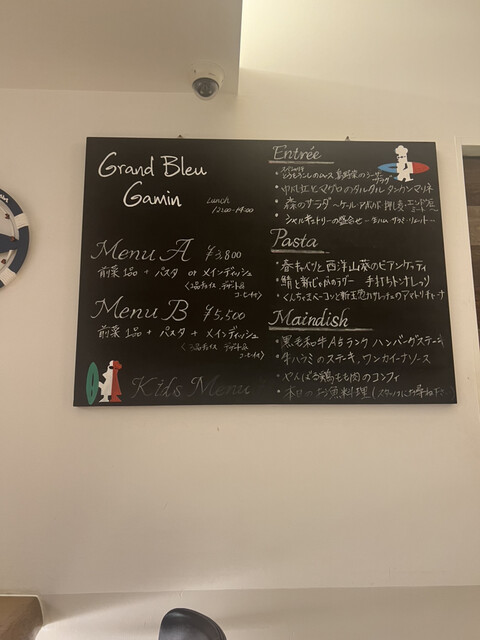 Grand Bleu
Gamin
Lunch
12:00-14:00
Menu A ¥3,800
前菜1品 + パスタ or メインディッシュ
Menu B ¥5,500
前菜1品 + パスタ + メインディッシュ
Kids Menu
Entrée
とうもろこしのムース 島野菜の
マグロのタルタル タンカンマリネ
森のサラダ ~ケール・アボカド
シャルキュトリーの盛合せ -生ハム サラミ
Pasta
春キャベツと西洋山葵のビアンケッティ
鯖と新じゃがのラグー 手打ちトナレッリ
くんちゃまベーコンと新玉葱
Maindish
黒毛和牛A5ランク ハンバーグステーキ
牛ハラミのステーキ、ワンカイーナソース
やんばる鶏もも肉のコンフィ
本日のお魚料理 (スタッフにお尋ね下さい)